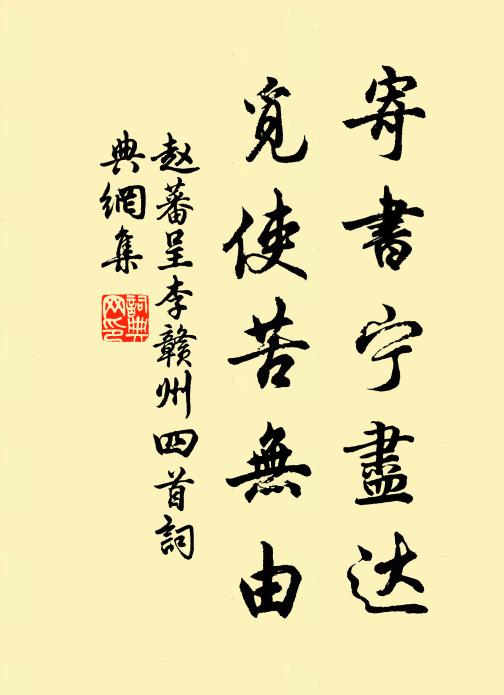 寄書宁盡达
覓使苦無由
赵蕃呈李赣州四首詞
典網集
詞典網印